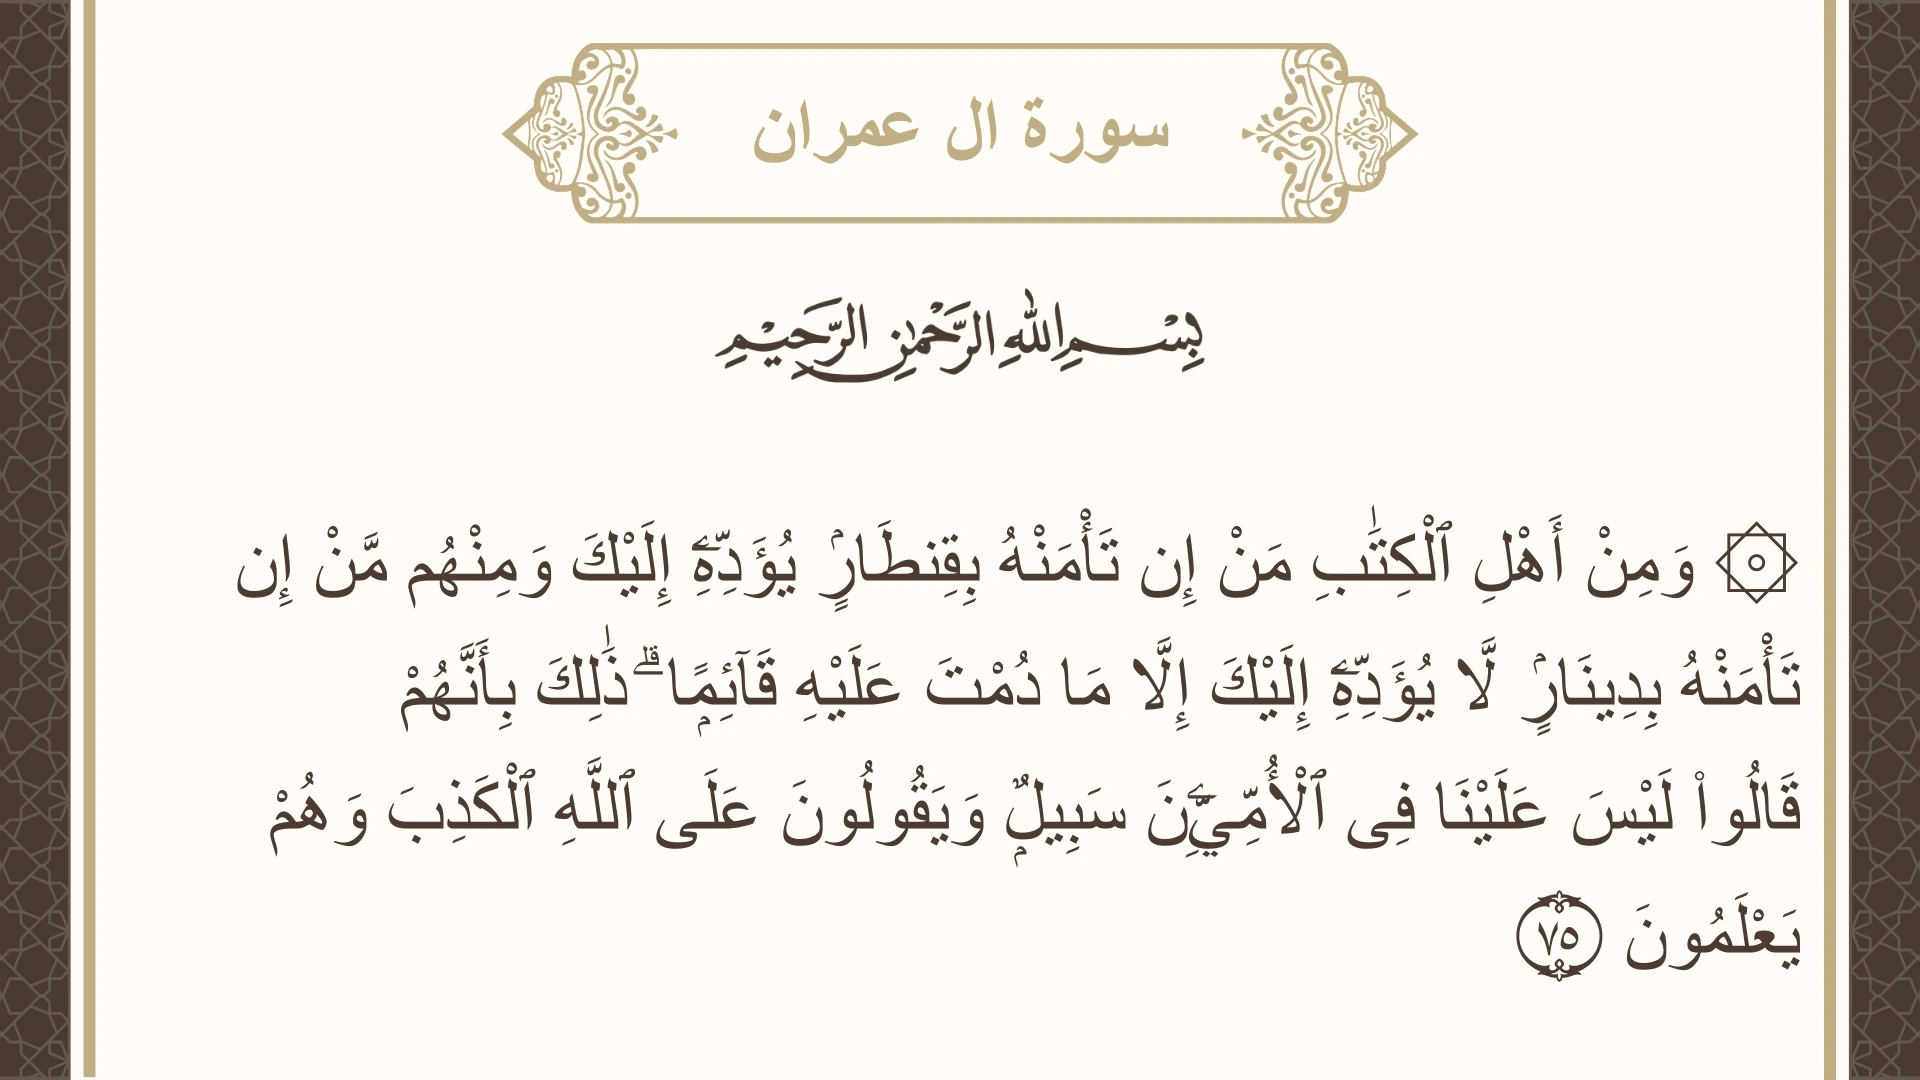 سورة ال عمران
بِسْمِ اللهِ الرَّحْمٰنِ الرَّحِيْمِ
۞ وَمِنْ أَهْلِ ٱلْكِتَـٰبِ مَنْ إِن تَأْمَنْهُ بِقِنطَارٍۢ يُؤَدِّهِۦٓ إِلَيْكَ وَمِنْهُم مَّنْ إِن
تَأْمَنْهُ بِدِينَارٍۢ لَّا يُؤَدِّهِۦٓ إِلَيْكَ إِلَّا مَا دُمْتَ عَلَيْهِ قَآئِمًۭا ۗ ذَٰلِكَ بِأَنَّهُمْ
قَالُوا۟ لَيْسَ عَلَيْنَا فِى ٱلْأُمِّيِّـۧنَ سَبِيلٌۭ وَيَقُولُونَ عَلَى ٱللَّهِ ٱلْكَذِبَ وَهُمْ
يَعْلَمُونَ ٧٥